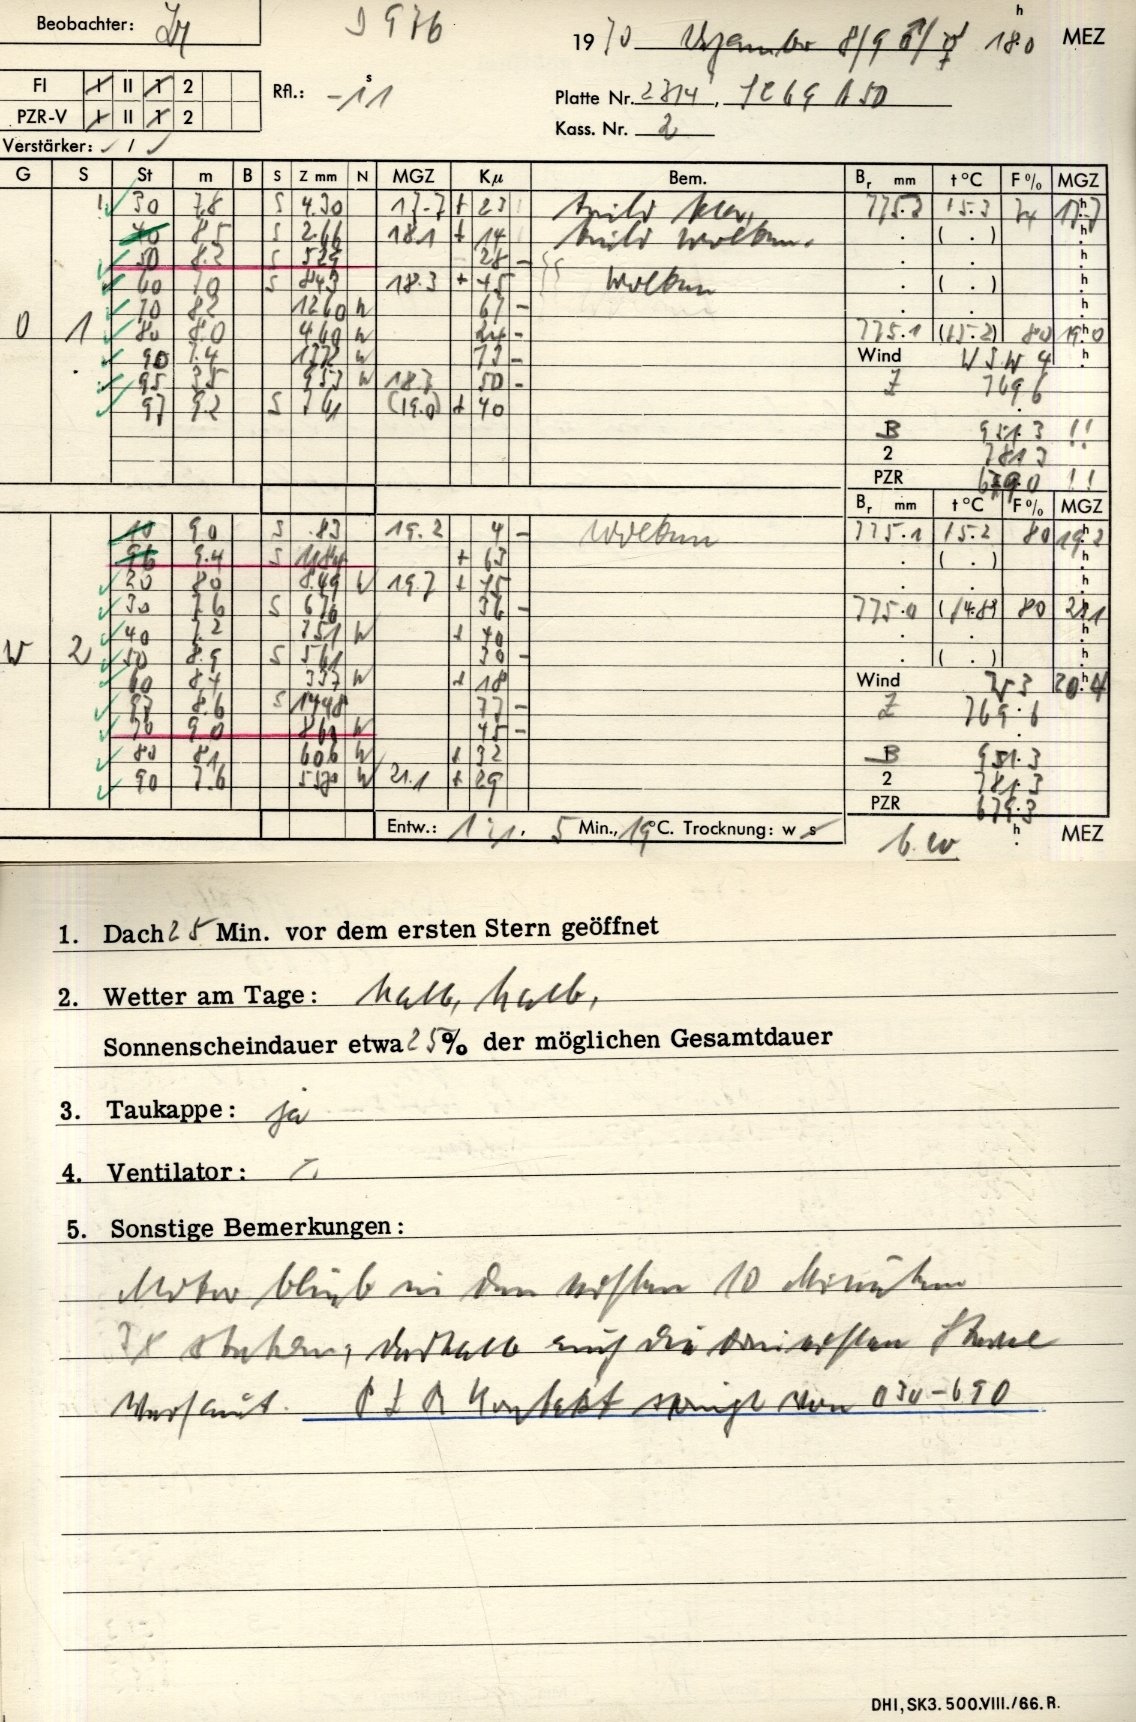 Beobachter:
D 976
h
19 70 Dezember 8/9 18.0 MEZ
FI I II 1 2
Rfl.: -11 s
Platte Nr. 2814,
PZR-V I II 1 2
Kass. Nr. 2
Verstärker: /
G S St m B S Z mm N MGZ Kµ Bem. Br mm t °C F % MGZ
30 7.8 S 4.30 17.7 + 23 775.2 15.3 74 17.7 h
40 8.5 S 2.66 18.1 + 14 . ( . ) h
50 8.2 S 529 28 - . . h
60 7.0 S 843 18.3 + 45 Wolken . ( . ) h
70 82 1260 W 67 - . . h
0 1 80 8.0 460 W 24 - 775.1 (15.2) 80 19.0 h
90 7.4 1372 W 73 - Wind W S W 4 h
95 3.5 953 W 18.7 50 - Z 769 6
97 9.2 S 761 (19.0) + 40
B 951.3 !!
2 781.3
PZR 679.0 !!
Br mm t °C F % MGZ
10 9.0 S .83 19.2 4 - Wolken 775.1 15.2 80 19.2 h
96 9.4 S 1184 + 63 . ( . ) h
20 80 8.49 W 19.7 + 45 . . h
30 7.6 S 676 36 - 775.0 (14.8) 80 21.1 h
40 7.2 751 W + 40 . . h
W 2 50 8.9 S 561 30 - . ( . ) h
60 8.4 337 W + 18 Wind 20.4 h
97 8.6 S 1448 77 - Z 769.6
70 9.0 860 W 45 -
80 81 606 W + 32 B 951.3
90 7.6 W 21.1 + 29 2 781.3
PZR 679.3
Entw.: 1:1, 5 Min., 19 °C. Trocknung: w s h MEZ
1. Dach 25 Min. vor dem ersten Stern geöffnet
2. Wetter am Tage: halb, halb,
Sonnenscheindauer etwa 25 % der möglichen Gesamtdauer
3. Taukappe: ja
4. Ventilator: -
5. Sonstige Bemerkungen:
Motor blieb in den ersten 10 Minuten
3x stehen, deshalb auch die drei ersten Sterne
versaut. P Z R Kontakt springt von 030-690
DHI, SK3. 500.VIII./66. R.